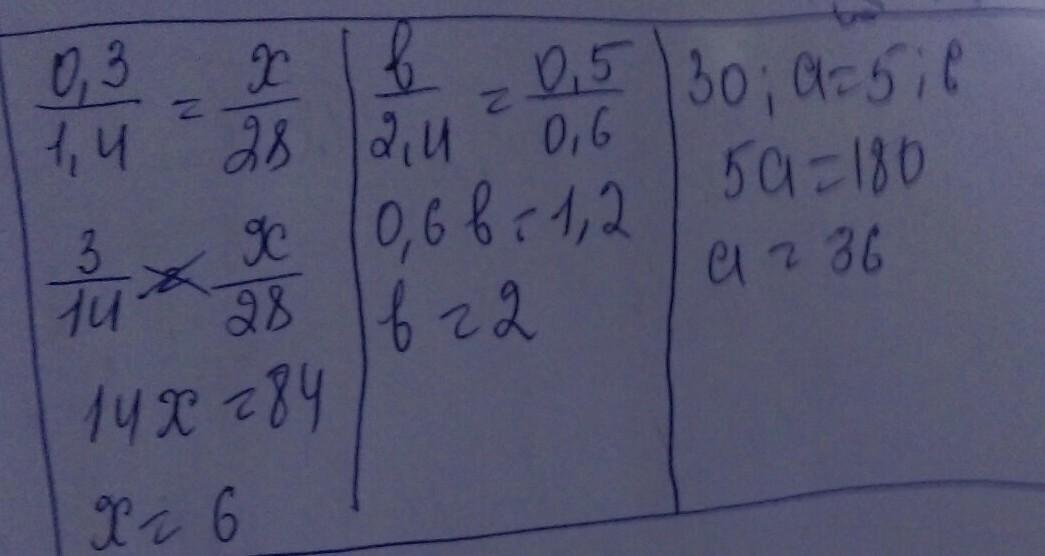 0,3/1,4 = x/28
3/14 = x/28
14x = 84
x = 6
b/2,4 = 0,5/0,6
0,6 b = 1,2
b = 2
30 ; a = 5 ; 6
5a = 180
a = 36